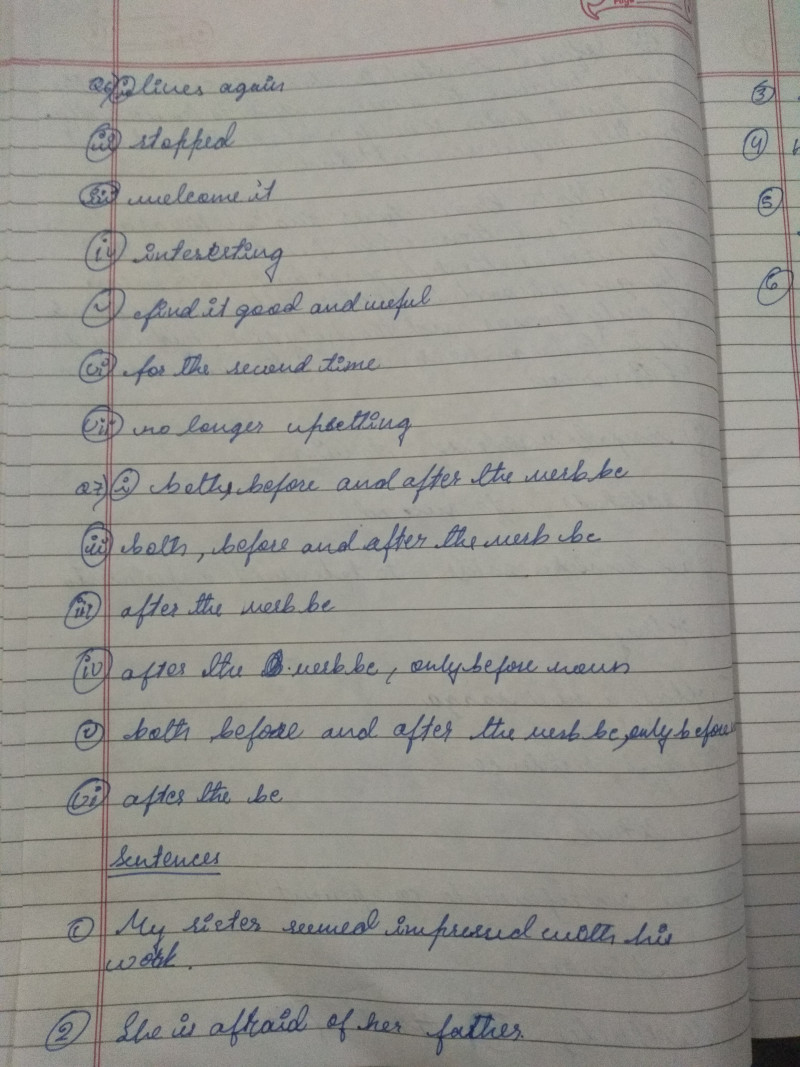 Q6) i lives again
ii stopped
iii welcome it
iv interesting
v find it good and useful
vi for the second time
vii no longer upsetting
Q7) i both, before and after the verb be
ii both, before and after the verb be
iii after the verb be
iv after the verb be, only before noun
v both before and after the verb be, only before
vi after the be
Sentences
1 My sister seemed impressed with his
work.
2 She is afraid of her father.
3
4
5
6